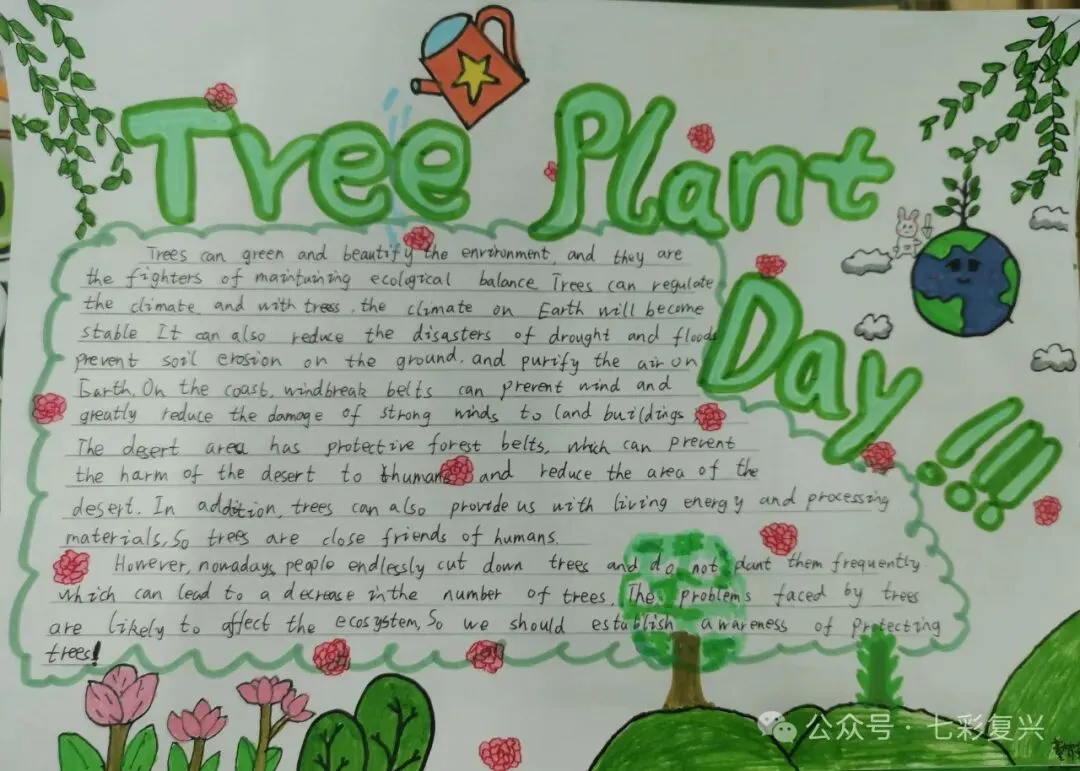 Tree Plant
Day!!!
Trees can green and beautify the environment, and they are
the fighters of maintaining ecological balance. Trees can regulate
the climate and with trees, the climate on Earth will become
stable It can also reduce the disasters of drought and floods
prevent soil erosion on the ground. and purify the air on
Earth. On the coast, windbreak belts can prevent wind and
greatly reduce the damage of strong winds to land buildings
The desert area has protective forest belts, which can prevent
the harm of the desert to humans and reduce the area of the
desert. In addition, trees can also provide us with living energy and processing
materials, So trees are close friends of humans.
However, nowadays, people endlessly cut down trees and do not plant them frequently
which can lead to a decrease in the number of trees. The problems faced by trees
are likely to affect the ecosystem, So we should establish awareness of protecting
trees!
公众号·七彩复兴